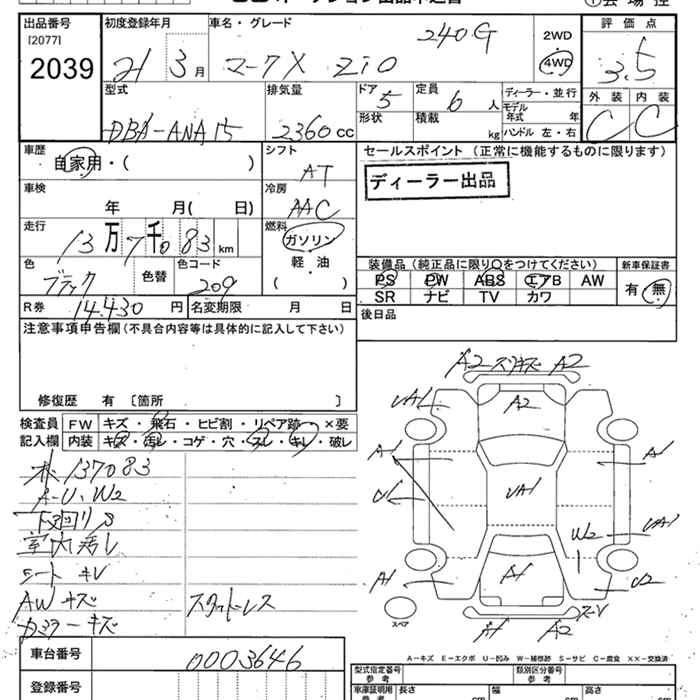 出品番号
[2077]
2039
初度登録年月
21 3月
車名・グレード
240G
マークX ZIO
2WD
4WD
評価点
3.5
外装 内装
C C
型式
DBA-ANA15
排気量
2360cc
ドア
5
形状
定員
6人
積載
kg
ディーラー・並行
モデル
年式 年
ハンドル 左・右
車歴
自家用・( )
シフト
AT
セールスポイント (正常に機能するものに限ります)
ディーラー出品
車検
年 月( 日)
冷房
AAC
走行
13万7千083km
燃料
ガソリン
軽・油
( )
色
ブラック
色替
色コード
209
装備品(純正品に限り○をつけてください)
PS PW ABS エアB AW
SR ナビ TV カワ
新車保証書
有・無
R券 14.430円
名変期限 月 日
後日品
注意事項申告欄(不具合内容等は具体的に記入して下さい)
修復歴 有〔箇所 〕
検査員
記入欄
FW キズ・飛石・ヒビ割・リペア跡・×要
内装 キズ・汚レ・コゲ・穴・スレ・キレ・破レ
137083
A-U、W2
下回りS
室内汚レ
シート キレ
AWキズ
スタットレス
ミラーキズ
A2 スリキズ A2
UA1
A2
A1
A1
U1
UA1
UA1
W2
A1
A1
U2
スペア
A1
A2
A-キズ E-エクボ U-凹み W-補修跡 S-サビ C-腐食 XX-交換済
車台番号
0003646
登録番号
型式指定番号
参考
類別区分番号
参考
車庫証明用
参考
長さ
cm
幅
cm
高さ
cm